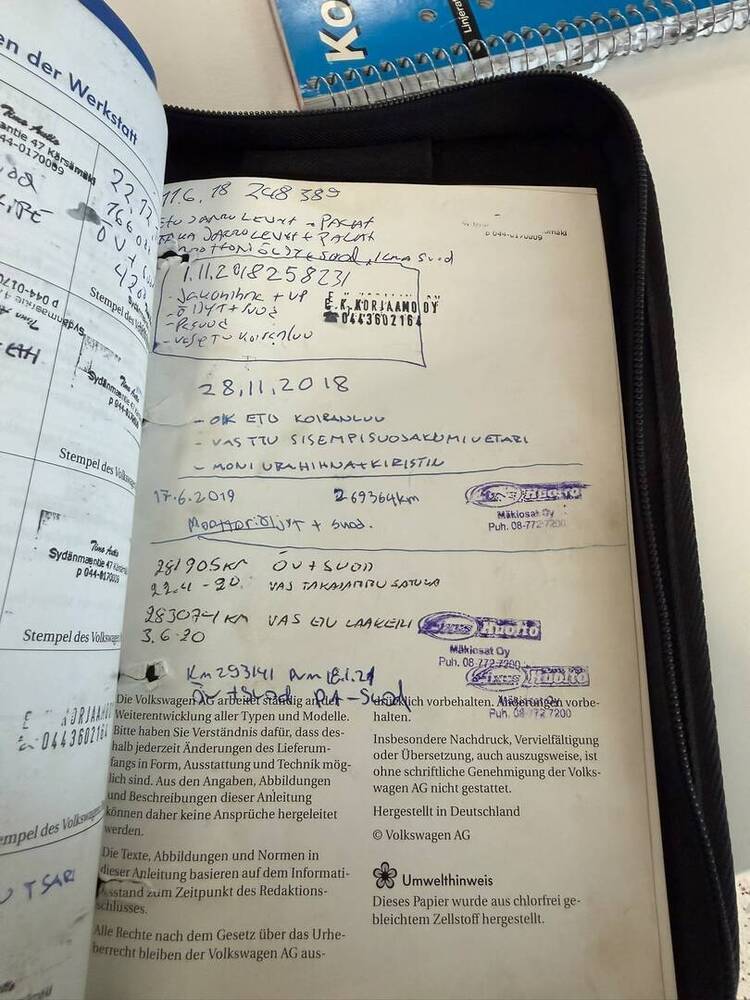 Ko
Linjerat
en der Werkstatt
Sydänmaantie 47 Kärsämäki
044-0170009
22.12
Stempel des
Sydänmaantie
p 044-0170009
Stempel des Volkswagen
Timo Autio
Sydänmaantie 47 Kärsämäki
p 044-0170009
Stempel des Volkswagen
0443602164
Stempel des Volkswagen
11.6.18 248 389
ETU JARRULEVYT + PALAT
TAKA JARRULEVYT + PALAT
p 044-0170009
1.11.2018 258231
- Jakohihna + VP
- ÖLJYT + SUOD
- Pesuod
- VAS ETU Koiranluu
E.K.KORJAAMO OY
☎0443602164
28.11.2018
- OIK ETU KOIRANLUU
- VAS ETU SISEMPI SUOJAKUMI VETARI
- MONIURAHIHNA + KIRISTIN
17.6.2019 269364km
Moottoriöljyt + suod.
Huolto
Mäkiosat Oy
Puh. 08-772 7200
281905KM ÖV + SUOD
22.4-20 VAS TAKAJARRU SATULA
283074 KM VAS ETU LAAKERI
3.6.20
Huolto
Mäkiosat Oy
Puh. 08-772 7200
Km 293141 Pvm 18.1.21
Öv + Suod
Huolto
Mäkiosat Oy
Puh. 08-772 7200
Die Volkswagen AG arbeitet ständig an der
Weiterentwicklung aller Typen und Modelle.
Bitte haben Sie Verständnis dafür, dass des-
halb jederzeit Änderungen des Lieferum-
fangs in Form, Ausstattung und Technik mög-
lich sind. Aus den Angaben, Abbildungen
und Beschreibungen dieser Anleitung
können daher keine Ansprüche hergeleitet
werden.
Die Texte, Abbildungen und Normen in
dieser Anleitung basieren auf dem Informati-
onsstand zum Zeitpunkt des Redaktions-
schlusses.
Alle Rechte nach dem Gesetz über das Urhe-
berrecht bleiben der Volkswagen AG aus-
drücklich vorbehalten. Änderungen vorbe-
halten.
Insbesondere Nachdruck, Vervielfältigung
oder Übersetzung, auch auszugsweise, ist
ohne schriftliche Genehmigung der Volks-
wagen AG nicht gestattet.
Hergestellt in Deutschland
© Volkswagen AG
Umwelthinweis
Dieses Papier wurde aus chlorfrei ge-
bleichtem Zellstoff hergestellt.